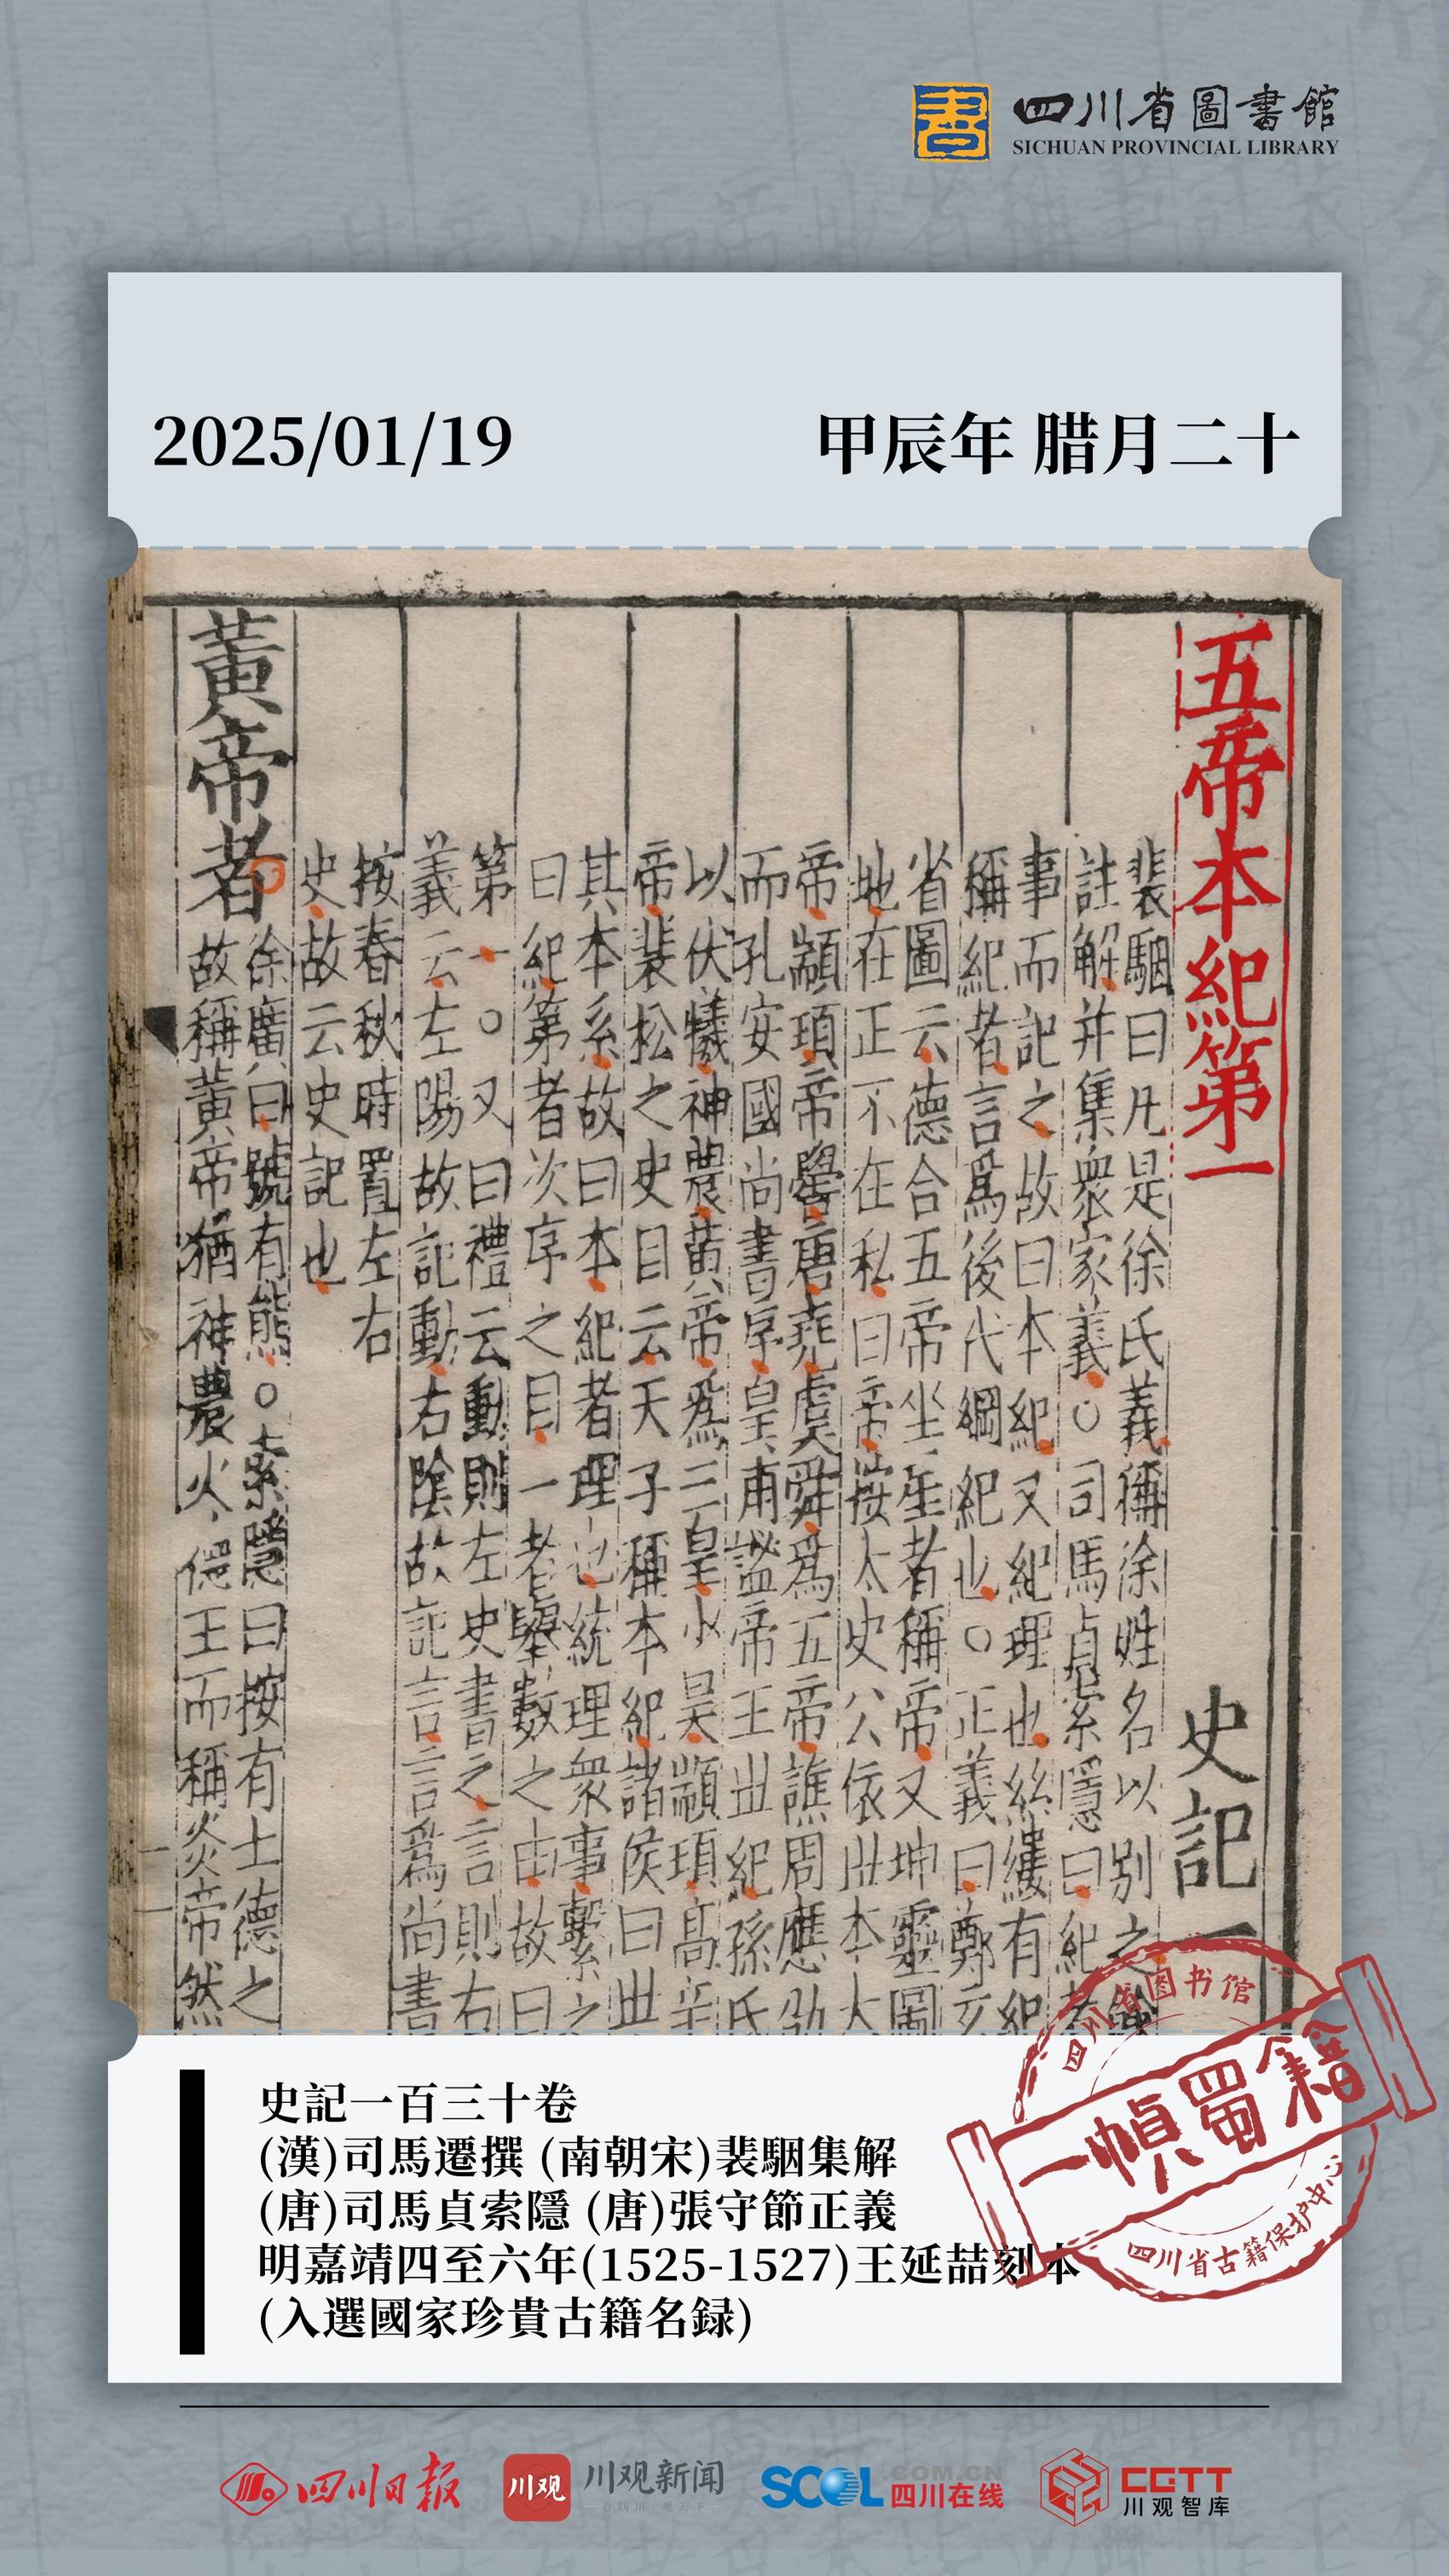 四川省圖書館
SICHUAN PROVINCIAL LIBRARY
2025/01/19
甲辰年 腊月二十
五帝本紀第一 史記一
裴駰曰凡是徐氏義稱徐姓名以別之
註解并集衆家義○司馬貞索隱曰紀者
事而記之故曰本紀又紀理也絲縷有紀
稱紀者言爲後代綱紀也○正義曰鄭玄
省圖云德合五帝坐星者稱帝又坤靈圖
地在正不在私曰帝按太史公依世本大
帝顓頊帝嚳唐堯虞舜爲五帝譙周應劭
而孔安國尚書序皇甫謐帝王世紀孫氏
以伏犧神農黃帝爲三皇少昊顓頊高辛
帝裴松之史目云天子稱本紀諸侯曰世
其本系故曰本紀者理也統理衆事繫之
曰紀第者次序之目一者舉數之由故曰
第一○又曰禮云動則左史書之言則右
義云左陽故記動右陰故記言言爲尚書
按春秋時置左右
史故云史記也
黃帝者
徐廣曰號有熊○索隱曰按有土德之
故稱黃帝猶神農火德王而稱炎帝然
史記一百三十卷
(漢)司馬遷撰 (南朝宋)裴駰集解
(唐)司馬貞索隱 (唐)張守節正義
明嘉靖四至六年(1525-1527)王延喆刻本
(入選國家珍貴古籍名録)
四川省图书馆
一幀蜀籍
四川省古籍保护中心
四川日报
川观
川观新闻
SCOL
.COM.CN
四川在线
CGTT
川观智库